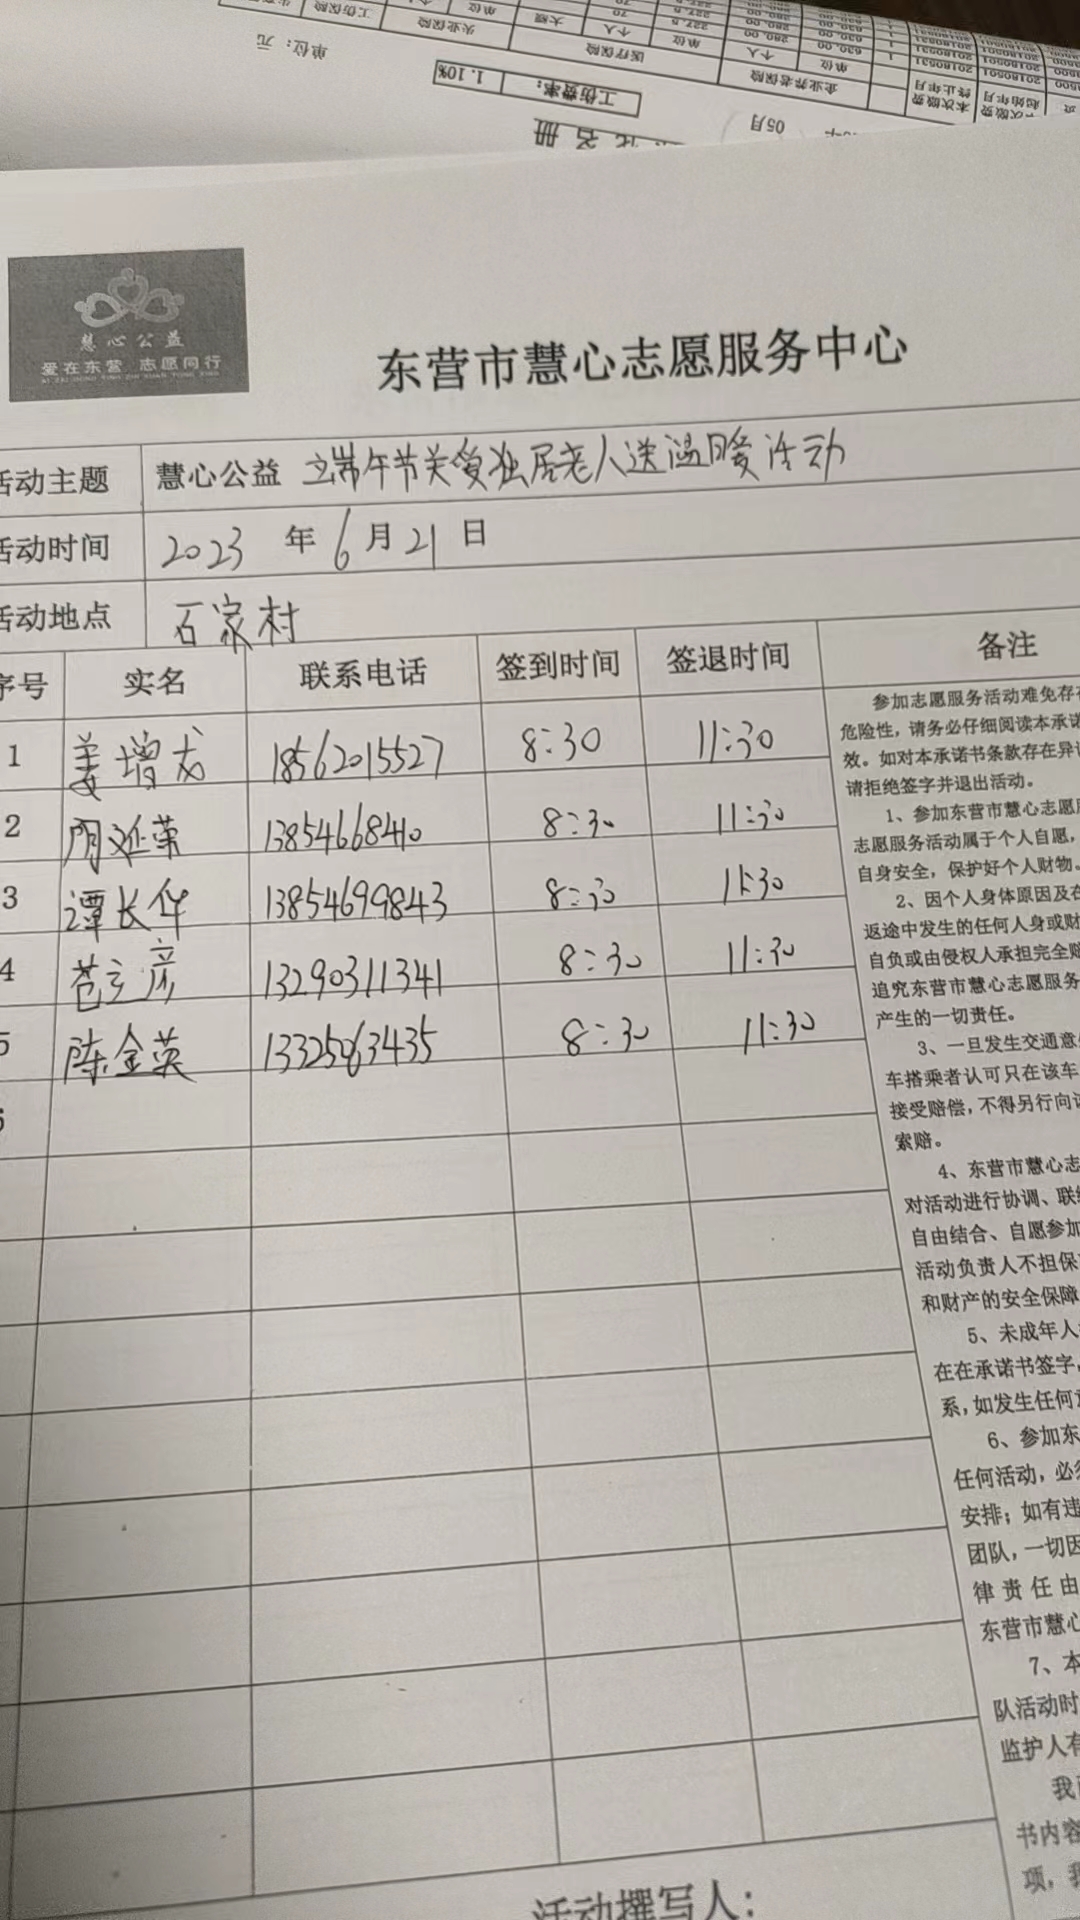 工伤费率： 1.10%
单位：元
05月
慧心公益
爱在东营 志愿同行
东营市慧心志愿服务中心
活动主题 慧心公益 端午节关爱独居老人送温暖活动
活动时间 2023 年 6 月 21 日
活动地点 石家村
序号 实名 联系电话 签到时间 签退时间 备注
1 姜增龙 18562015527 8:30 11:30
2 周延荣 13854668410 8:30 11:30
3 谭长华 13854699843 8:30 11:30
4 苍立彦 13290311341 8:30 11:30
5 陈金英 13325063435 8:30 11:30
6
参加志愿服务活动难免存在
危险性，请务必仔细阅读本承诺
效。如对本承诺书条款存在异议
请拒绝签字并退出活动。
1、参加东营市慧心志愿服
志愿服务活动属于个人自愿，
自身安全，保护好个人财物。
2、因个人身体原因及在
返途中发生的任何人身或财
自负或由侵权人承担完全赔
追究东营市慧心志愿服务
产生的一切责任。
3、一旦发生交通意外
车搭乘者认可只在该车
接受赔偿，不得另行向
索赔。
4、东营市慧心志
对活动进行协调、联络
自由结合、自愿参加
活动负责人不担保
和财产的安全保障
5、未成年人
在在承诺书签字，
系，如发生任何
6、参加东
任何活动，必须
安排；如有违
团队，一切因
律责任由
东营市慧心
7、本
队活动时
监护人有
我
书内容
项，我
活动撰写人：